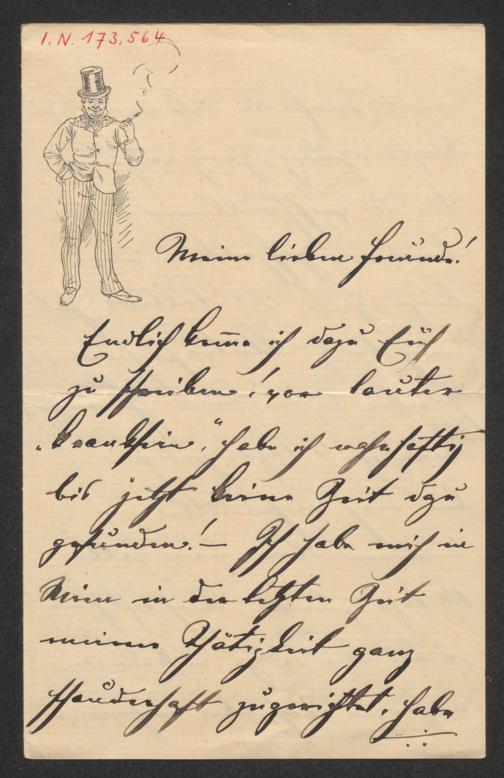 I.N. 173.564
Meine lieben Freunde!
Endlich komme ich dazu Euch
zu schreiben! vor lauter
„Kranksein“, habe ich wahrhaftig
bis jetzt keine Zeit dazu
gefunden! – Ich habe mich in
Wien in der letzten Zeit
meiner Thätigkeit ganz
schauderhaft zugerichtet, habe